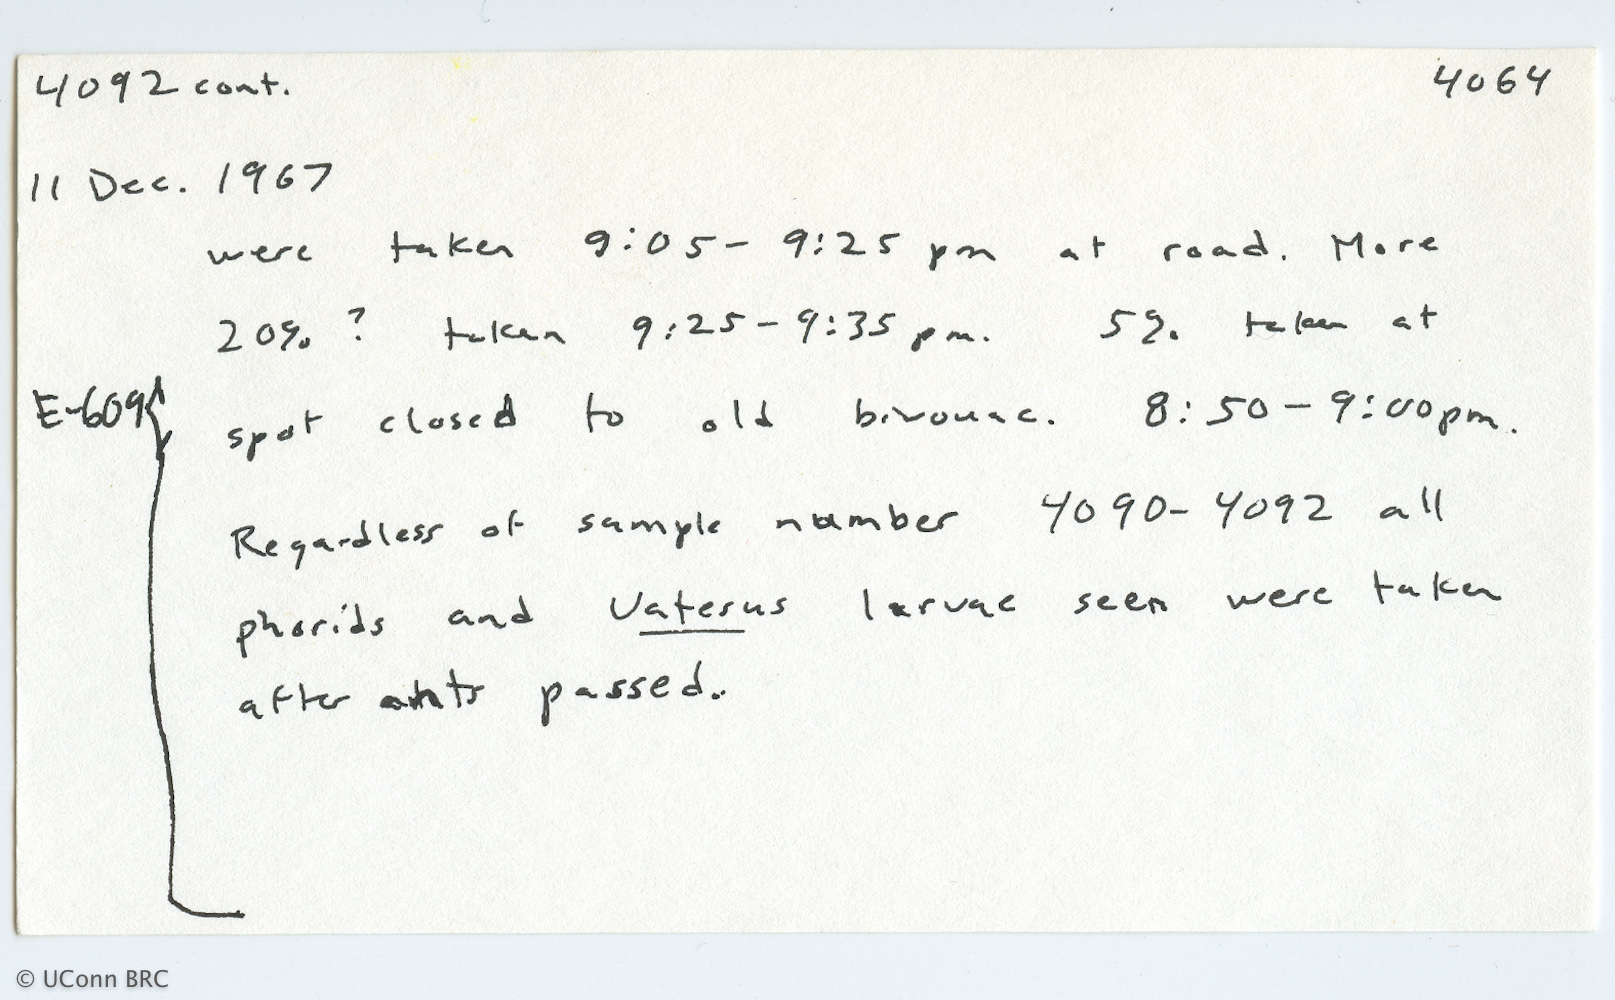 4092 cont. 4064
11 Dec. 1967
were taken 9:05 - 9:25 pm at road. More
20% ? taken 9:25 - 9:35 pm. 5% taken at
E-609 spot closed to old bivouac. 8:50 - 9:00 pm.
Regardless of sample number 4090 - 4092 all
phorids and Vaterus larvae seen were taken
after ants passed.
© UConn BRC